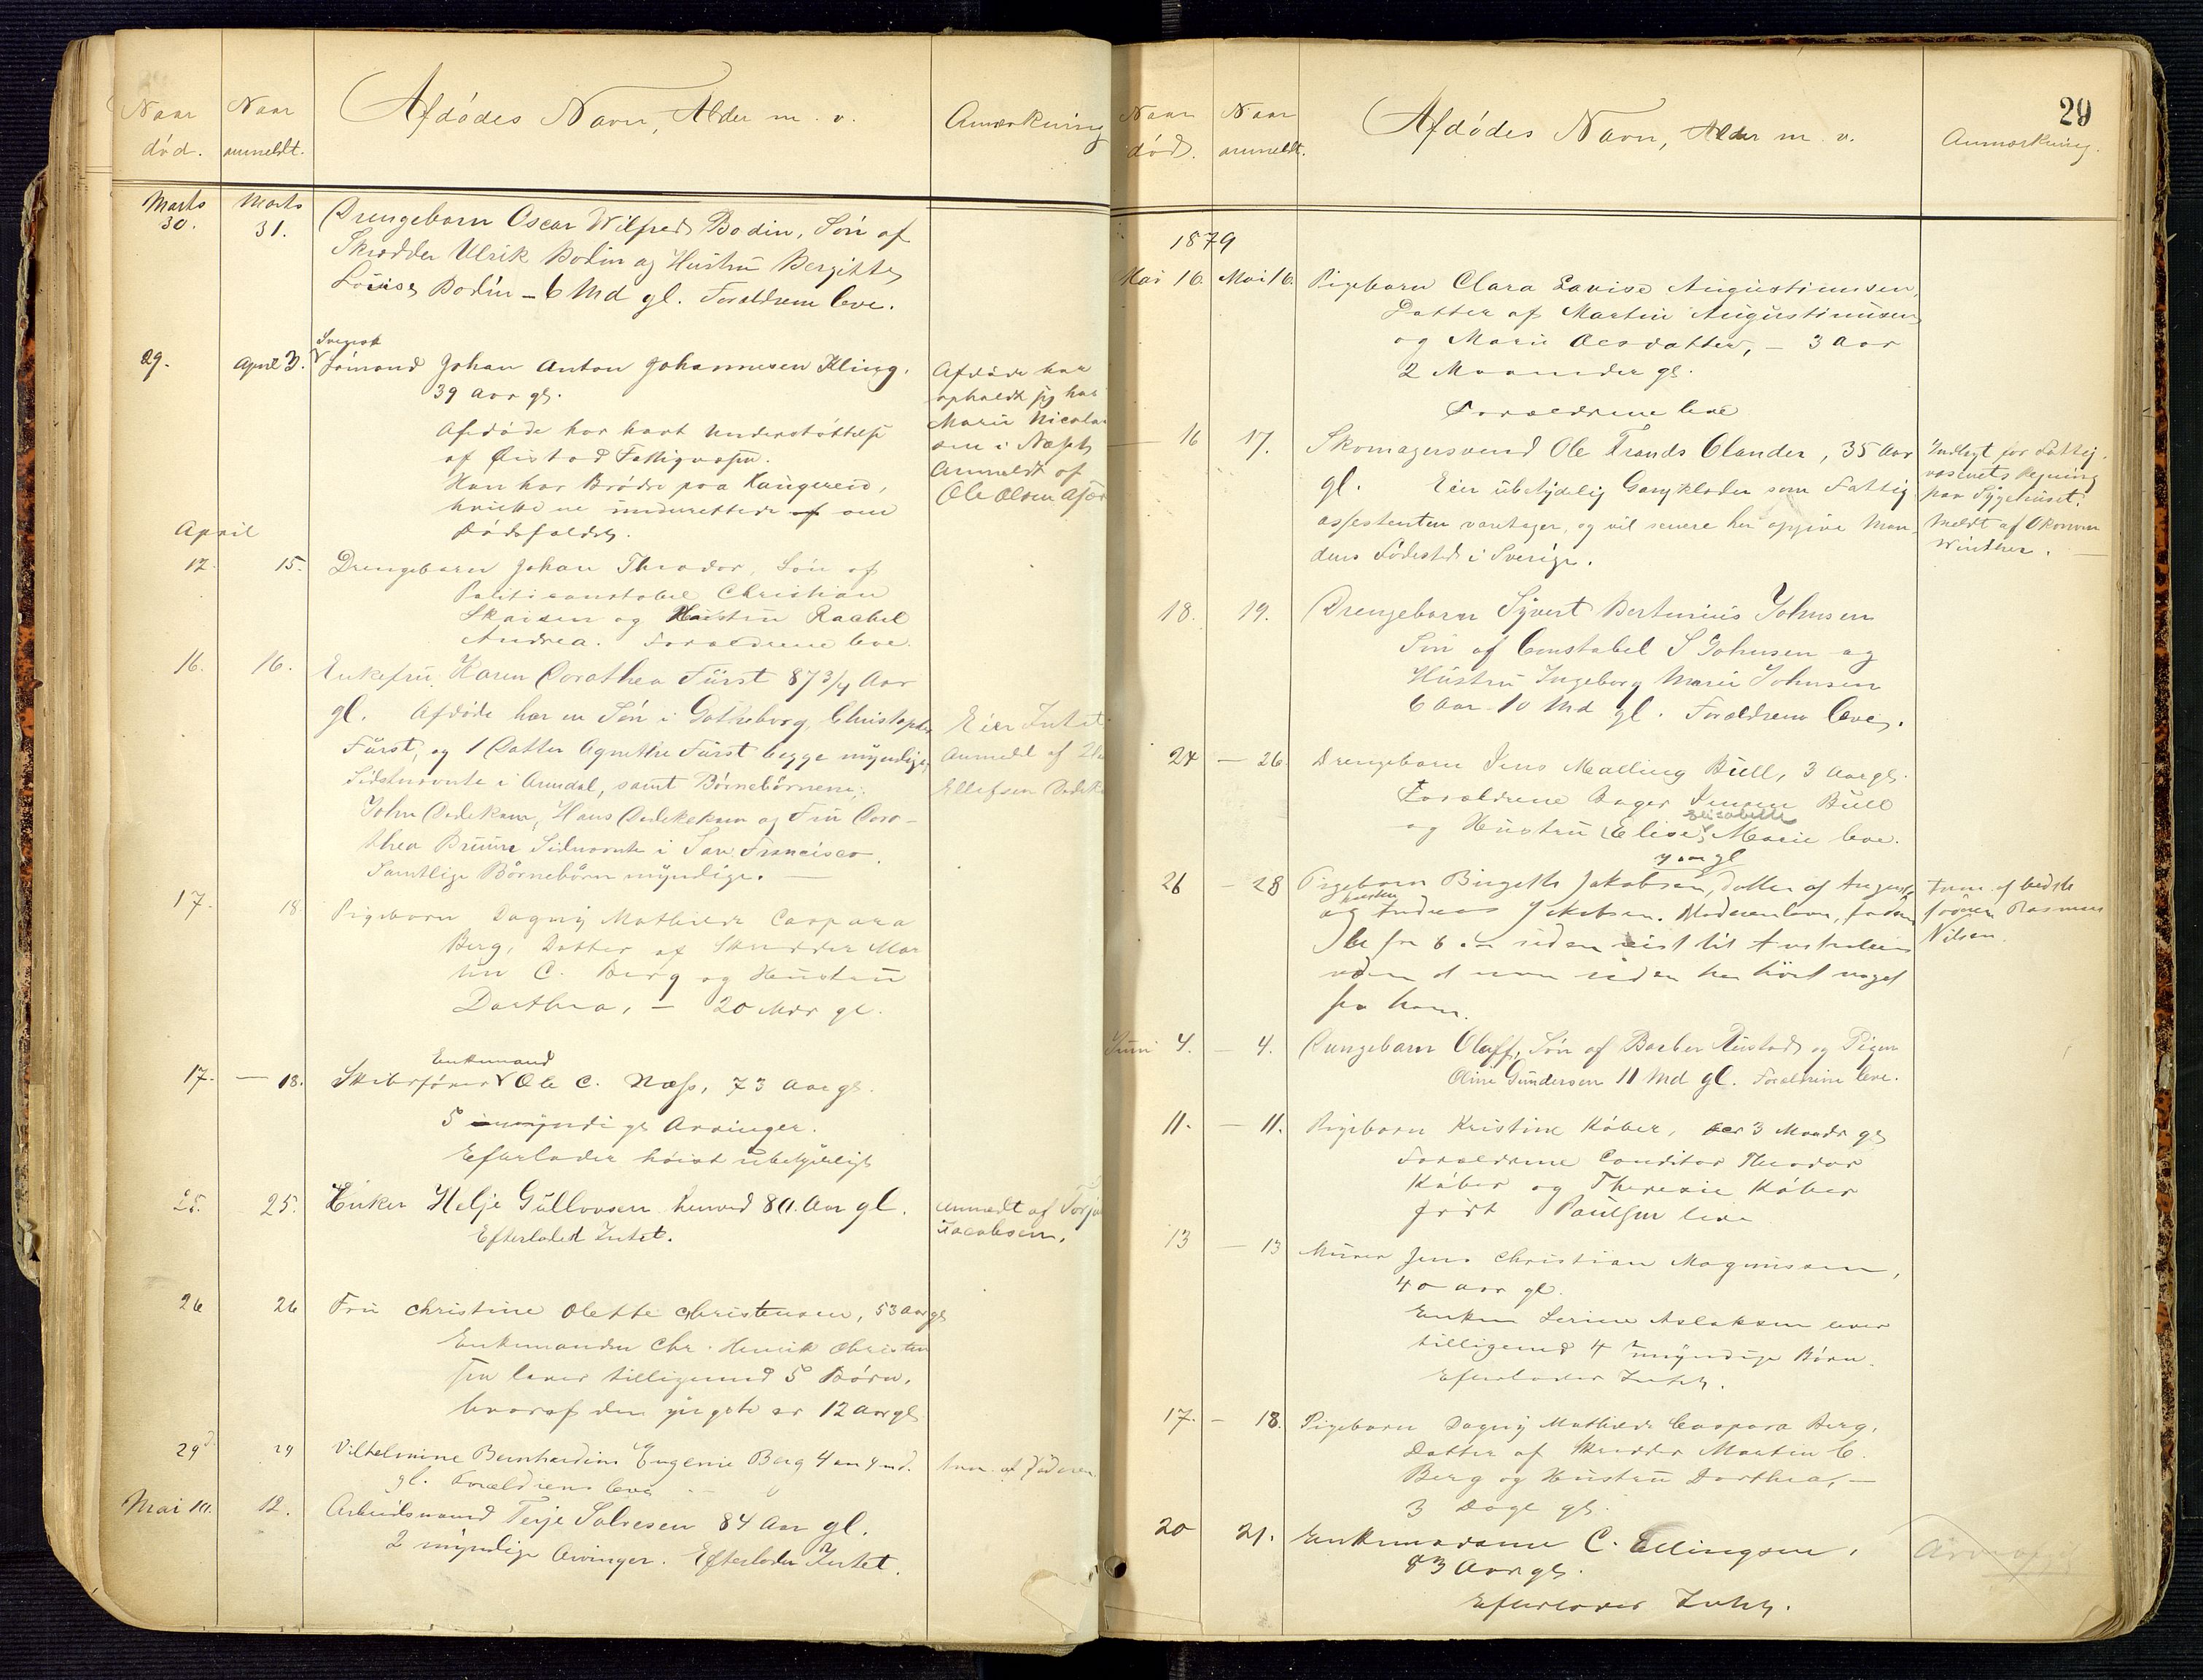 Naar død.
Naar anmeldt.
Afdødes Navn, Alder m. v.
Anmærkning
Marts 30.
Marts 31.
Drengebarn Oscar Wilfred Bodin, Søn af
Skrædder Ulrik Bodin og Hustru Bergitte
Louise Bodin – 6 Md gl. Forældrene leve.
29.
April 3.
Svensk
Sømand Johan Anton Johannesen Kling.
39 Aar gl.
Afdøde har havt Understøttelse
af Øiestad Fattigvæsen.
Han har Brødre paa
underrettede om
Dødsfaldet.
Afdøde har
opholdt sig hos
Marie Nicolai
sen i Næset
Anmeldt af
Ole Olsen
April
12.
15.
Drengebarn Johan Theodor, Søn af
Politiconstabel Christian
Skaisen og Hustru Rachel
Andrea. Forældrene leve.
16.
16.
Enkefru Karen Dorothea Fürst 87 3/4 Aar
gl. Afdøde har en Søn i Gotheborg, Christopher
Fürst, og 1 Datter Agnethe Fürst begge myndige,
Sidstnævnte i Arendal, samt Børnebørnene:
John Dedekam, Hans Dedekam og Fru Doro-
thea Bruun Sidnævnte i San Francisco.
Samtlige Børnebørn myndige. —
Eier Intet
Anmeldt af
Ellefsen
17.
18.
Pigebarn Dagny Mathilde Caspara
Berg, Datter af Skrædder Mar
tin C. Berg og Hustru
Dorthea, – 20 Mdr gl.
17. —
18.
Enkemand
Skibsfører Ole C. Næss, 73 Aar gl.
5 myndige Arvinger.
Efterlader høist ubetydeligt
25.
25.
Enken Helje Gullovsen henved 80 Aar gl.
Efterladt Intet.
Anmeldt af
Jacobsen.
26
26
Fru Christine Olette Christensen, 53 Aar gl
Enkemanden Chr. Henrik Christen
sen lever tilligemed 5 Børn,
hvoraf den yngste er 12 Aar gl
29d.
29
Vilhelmine Bernhardine Eugenie Berg 4 aar 4 md.
gl. Forældrene leve
Anm. af Faderen
Mai 10.
12.
Arbeidsmand Terje Salvesen 84 Aar gl.
2 myndige Arvinger. Efterlader Intet.
29
Naar død.
Naar anmeldt.
Afdødes Navn, Alder m. v.
Anmærkning.
1879
Mai 16.
Mai 16.
Pigebarn Clara Lovise Augustinusen,
Datter af Martin Augustinusen
og Marie Olesdatter, – 3 Aar
2 Maaneder gl.
Forældrene leve
— 16
17.
Skomagersvend Ole Frands Olander, 35 Aar
gl. Eier ubetydelig Gangklæder som Fattig
assistenten varetager, og vil senere her opgive Man
dens Fødested i Sverige.
Indlagt for Fattig
væsenets Regning
paa Sygehuset.
Meldt af Økonom
Winther. —
18.
19.
Drengebarn Syvert Bertinius Johnsen
Søn af Constabel S Johnsen og
Hustru Ingeborg Marie Johnsen
6 Aar 10 Md gl. Forældrene leve.
24
— 26
Drengebarn Jens Malling Bull, 3 Aar gl.
Forældrene Bager Jensen Bull
Elisabeth
og Hustru Elise Marie leve.
26
— 28
Pigebarn Birgethe Jakobsen, datter af
og Andreas Jakobsen. Moderen lever, faderen
er for 6 aar siden reist til Australien
uden at man siden har hørt noget
fra ham.
Anm. af bedste
faderen Rasmus
Nilsen.
Juni 4. —
4.
Drengebarn Oluff, Søn af Barber Rustad og Pigen
Oline Gundersen 11 Md gl. Forældrene leve.
11. —
11.
Pigebarn Kristine Køber, 3 Maandr gl
Forældrene Conditor Theodor
Køber og Theresie Køber
født Paulsen leve
13
— 13
Murer Jens Christian Magnussen,
40 Aar gl.
Enken Serine Aslaksen lever
tilligemed 4 umyndige Børn.
Efterlader Intet.
17. —
18.
Pigebarn Dagny Mathilde Caspara Berg,
Datter af Skrædder Martin C.
Berg og Hustru Dorthea, —
3 Dage gl.
20
21.
Enkemadame C. Ellingsen,
83 Aar gl.
Efterlader Intet.